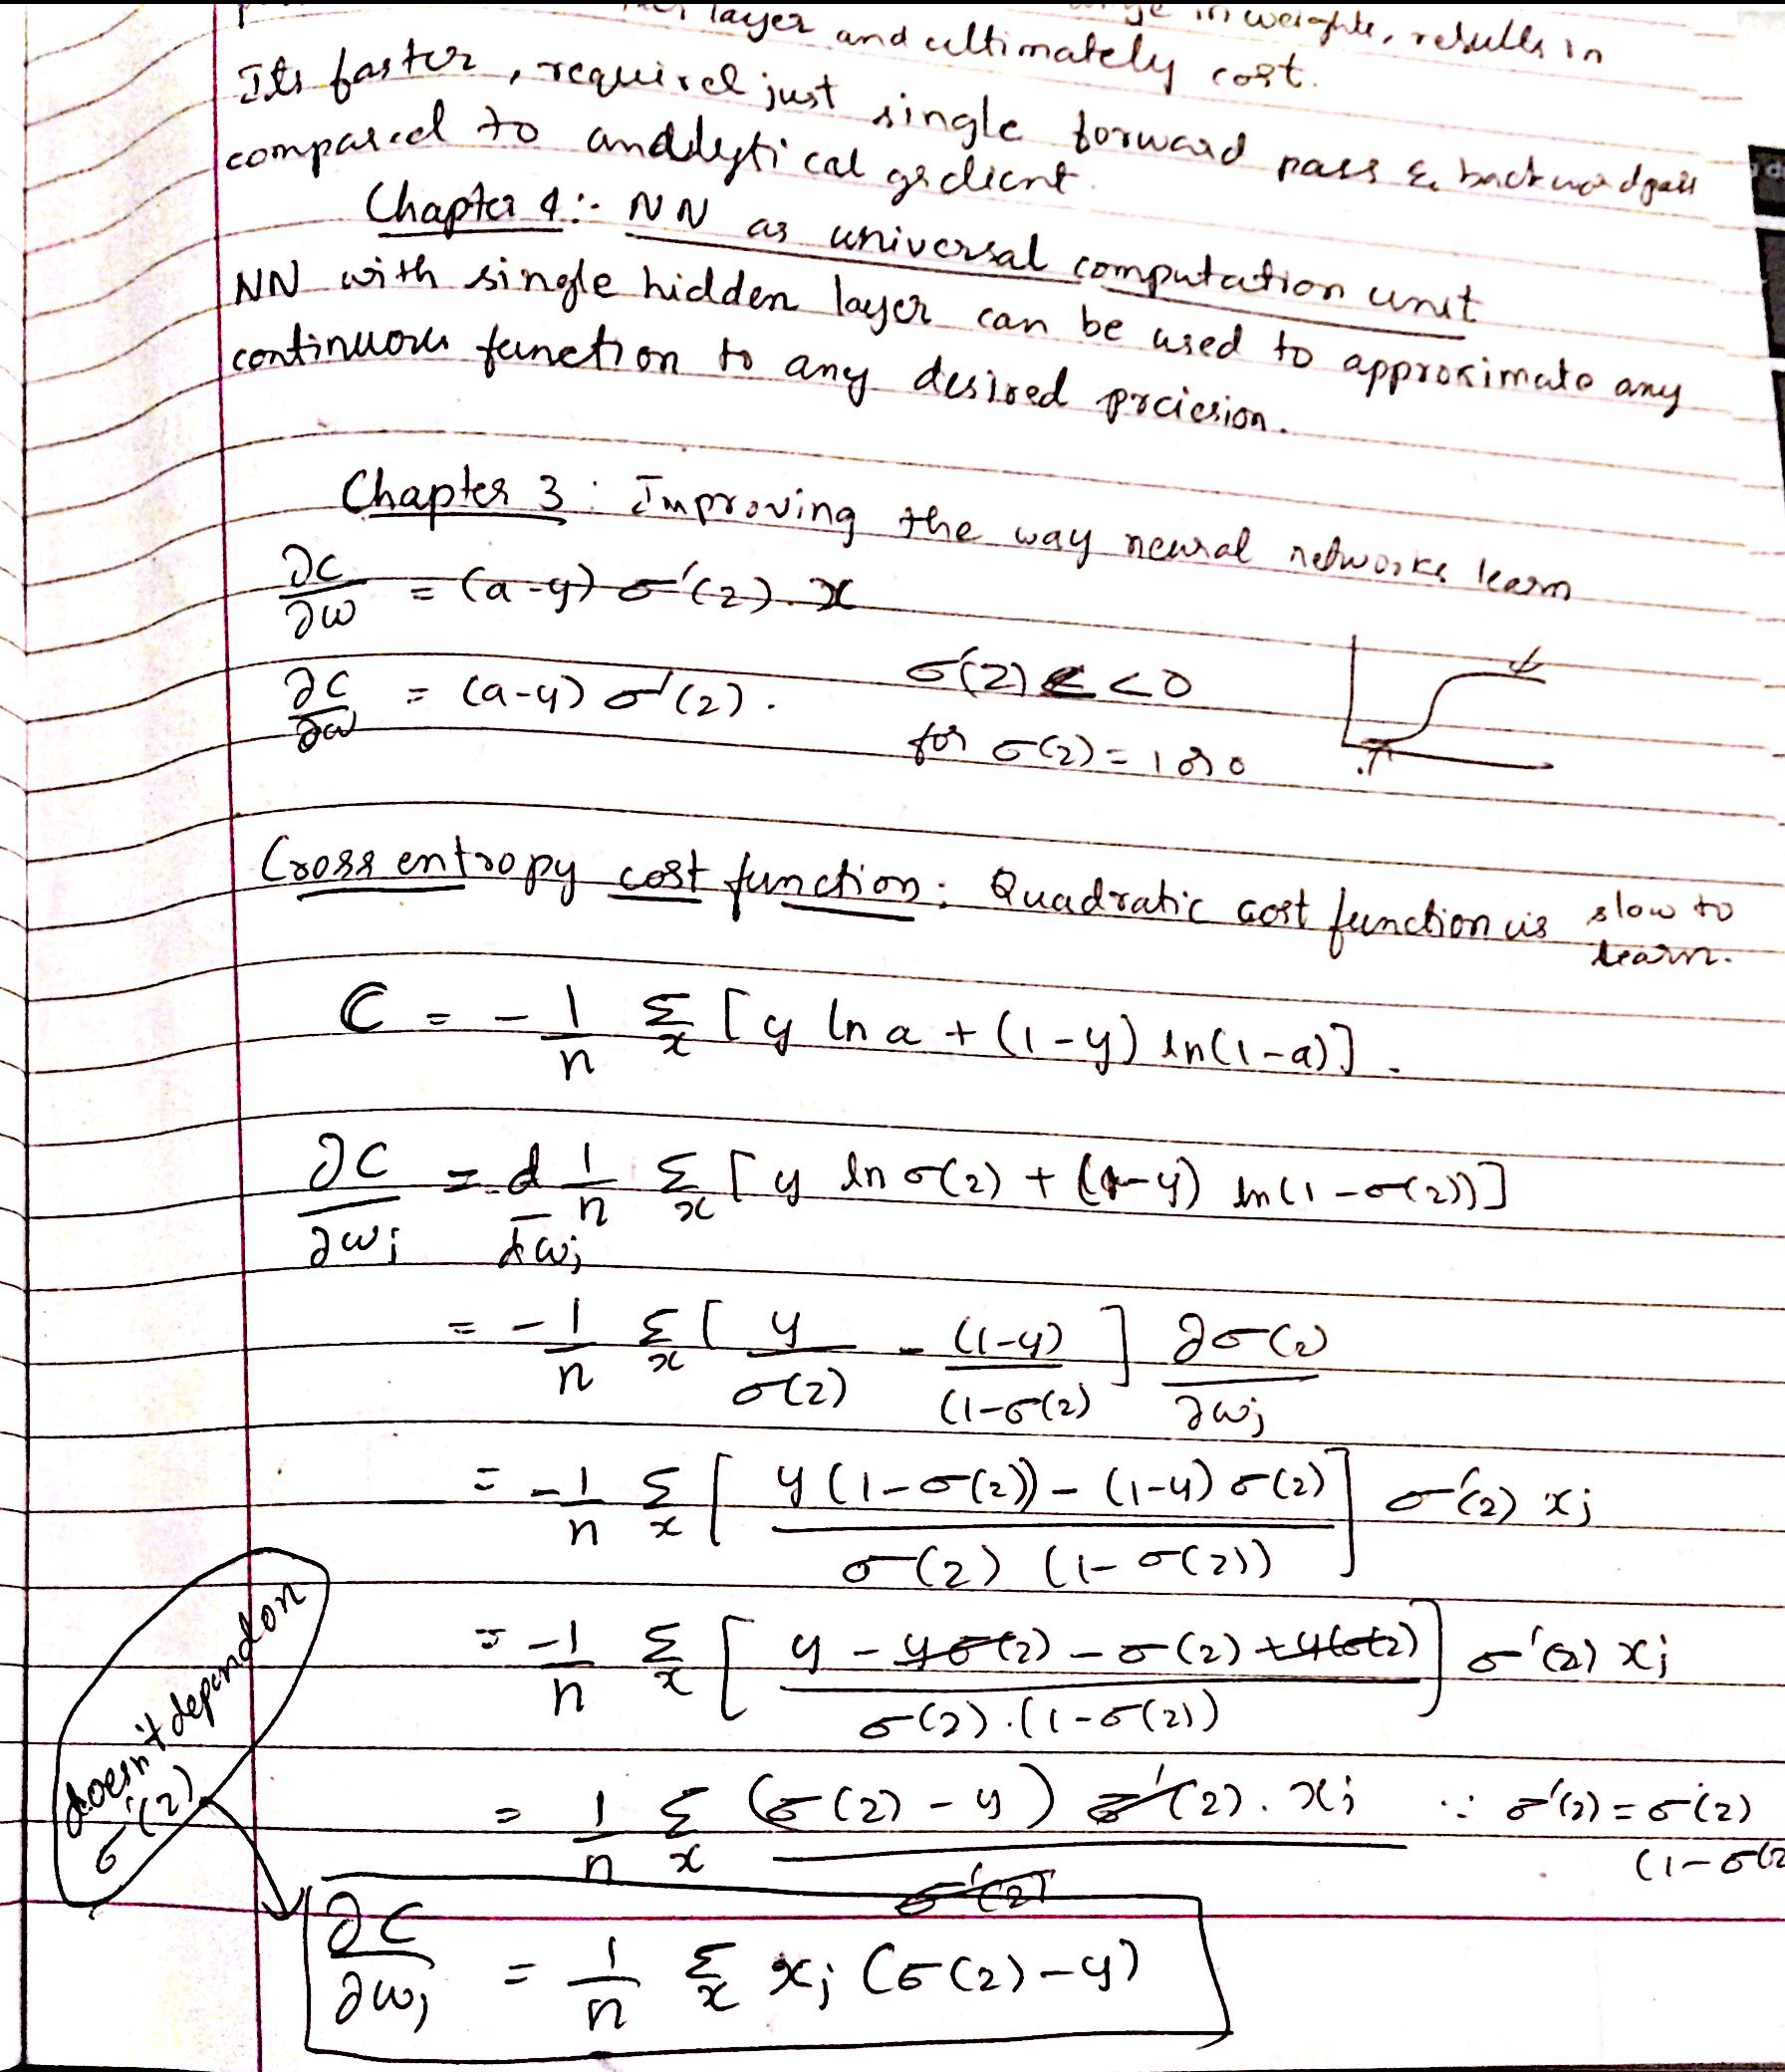 layer and ultimately cost. in weights, results in
Its faster, required just single forward pass & backward pass
compared to analytical gradient.
Chapter 4:- NN as universal computation unit
NN with single hidden layer can be used to approximate any
continuous function to any desired prciesion.
Chapter 3: Improving the way neural networks learn
∂C/∂w = (a-y) σ'(z). x
∂C/∂w = (a-y) σ'(z). σ'(z) < < 0
for σ(z) = 1 or 0
Cross entropy cost function: Quadratic cost function is slow to learn.
C = - 1/n Σ_x [y ln a + (1-y) ln(1-a)].
∂C/∂w_j = d/dw_j 1/n Σ_x [y ln σ(z) + (1-y) ln(1-σ(z))]
= -1/n Σ_x [y/σ(z) - (1-y)/(1-σ(z)] ∂σ(z)/∂w_j
= -1/n Σ_x [y(1-σ(z)) - (1-y)σ(z) / σ(z) (1-σ(z))] σ'(z) x_j
= -1/n Σ_x [y - yσ(z) - σ(z) + y(σ(z) / σ(z).(1-σ(z))] σ'(z) x_j
= 1/n Σ_x (σ(z) - y) σ'(z). x_j / σ'(z) ∵ σ'(z) = σ(z) (1-σ(z
doesn't depend on
σ'(z)
∂C/∂w_j = 1/n Σ_x x_j (σ(z) - y)